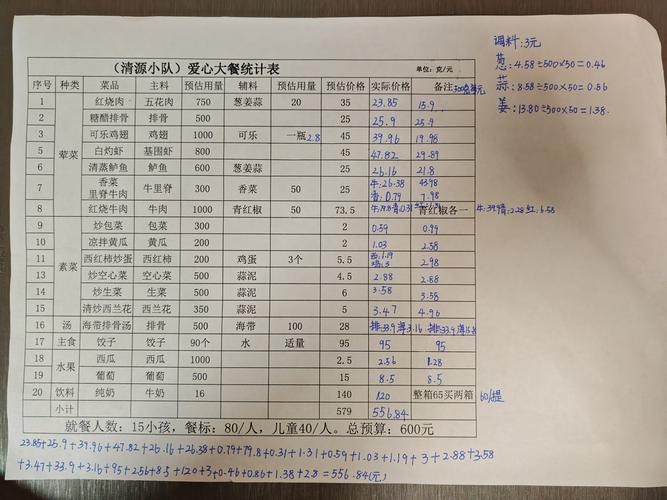 调料：3元
葱：4.58÷500×50=0.46
蒜：8.58÷500×50=0.86
姜：13.80÷500×50=1.38.
（清源小队）爱心大餐统计表 单位：克/元
序号 种类 菜品 主料 预估用量 辅料 预估用量 预估价格 实际价格 备注
荤菜
1 红烧肉 五花肉 750 葱姜蒜 20 35 23.85 15.9
2 糖醋排骨 排骨 500 25 25.9 25.9
3 可乐鸡翅 鸡翅 1000 可乐 一瓶2.8 45 39.96 19.98
5 白灼虾 基围虾 800 45 47.82 29.89
6 清蒸鲈鱼 鲈鱼 600 葱姜蒜 25 26.16 21.8
7 香菜 里脊牛肉 牛里脊 300 香菜 50 25 牛:26.38 43.98
香:0.79 7.98
8 红烧牛肉 牛肉 1000 青红椒 50 73.5 青红椒各一
素菜
9 炒包菜 包菜 300 2 0.59 0.99
10 凉拌黄瓜 黄瓜 200 2 1.03 2.58
11 西红柿炒蛋 西红柿 200 鸡蛋 3个 5.5 西:1.19 2.98
13 炒空心菜 空心菜 500 蒜泥 4.5 2.88 2.88
14 炒生菜 生菜 500 蒜泥 6 3.58 3.58
15 清炒西兰花 西兰花 350 蒜泥 5 3.47 4.96
16 汤 海带排骨汤 排骨 500 海带 100 28 排:33.9 海3.16
17 主食 饺子 饺子 90个 水 适量 95 95 95
水果
18 西瓜 西瓜 1000 2.5 2.56 1.28
19 葡萄 葡萄 500 15 8.5 8.5
20 饮料 纯奶 牛奶 16 140 120 整箱65买两箱 60/提
小计 579 556.84
就餐人数：15小孩，餐标：80/人，儿童40/人。总预算：600元
23.85+25.9+39.96+47.82+26.16+26.38+0.79+79.8+0.31+1.31+0.59+1.03+1.19+3+2.88+3.58
+3.47+33.9+3.16+95+2.56+8.5+120+3+0.46+0.86+1.38+2.8=556.84(元)